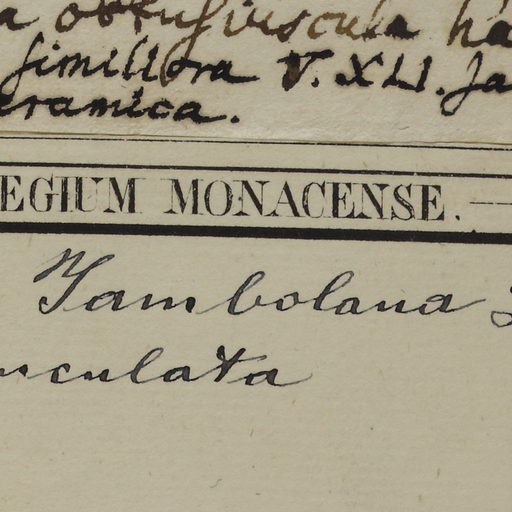 a obtusiuscula ha
simillora V. XLI. Ja
eramica.
EGIUM MONACENSE.
Jambolana
nculata